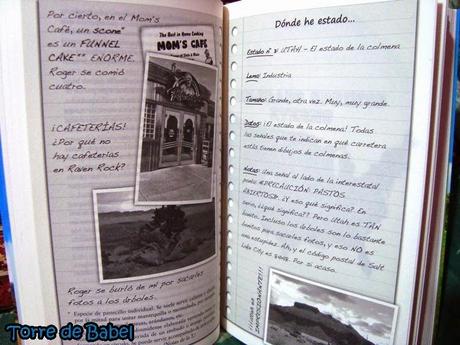 Por cierto, en el Mom's
Café, un scone*
es un FUNNEL
CAKE** ENORME.
Roger se comió
cuatro.
The Best in Home Cooking
MOM'S CAFE
¡CAFETERÍAS!
¿Por qué no
hay cafeterías
en Raven Rock?
Roger se burló de mí por sacarles
fotos a los árboles.
* Especie de panecillo individual. Se suele servir
por la mitad para untar mantequilla o
Dónde he estado...
Estado n.º 3: UTAH – El estado de la colmena
Lema: Industria
Tamaño: Grande, otra vez. Muy, muy grande.
Datos: ¡El estado de la colmena! Todas
las señales que te indican en qué carretera
estás tienen dibujos de colmenas.
Notas: Una señal al lado de la interestatal
ponía «PRECAUCIÓN: PASTOS
ABIERTOS». ¿Y eso qué significa?. En
serio, ¿qué significa?? Pero Utah es TAN
bonito. Incluso los árboles son lo bastante
bonitos para sacarles fotos, y eso NO es
una estupidez. Ah, y el código postal de Salt
Lake City es
Por si acaso.
¡¡¡Utah es
IMPRESIONANTE!!!
Torre de Babel